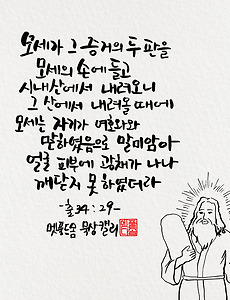 모세가 그 증거의 두 판을
모세의 손에 들고
시내산에서 내려오니
그 산에서 내려올 때에
모세는 자기가 여호와와
말하였음으로 말미암아
얼굴 피부에 광채가 나나
깨닫지 못하였더라
-출34:29-
묵상캘리